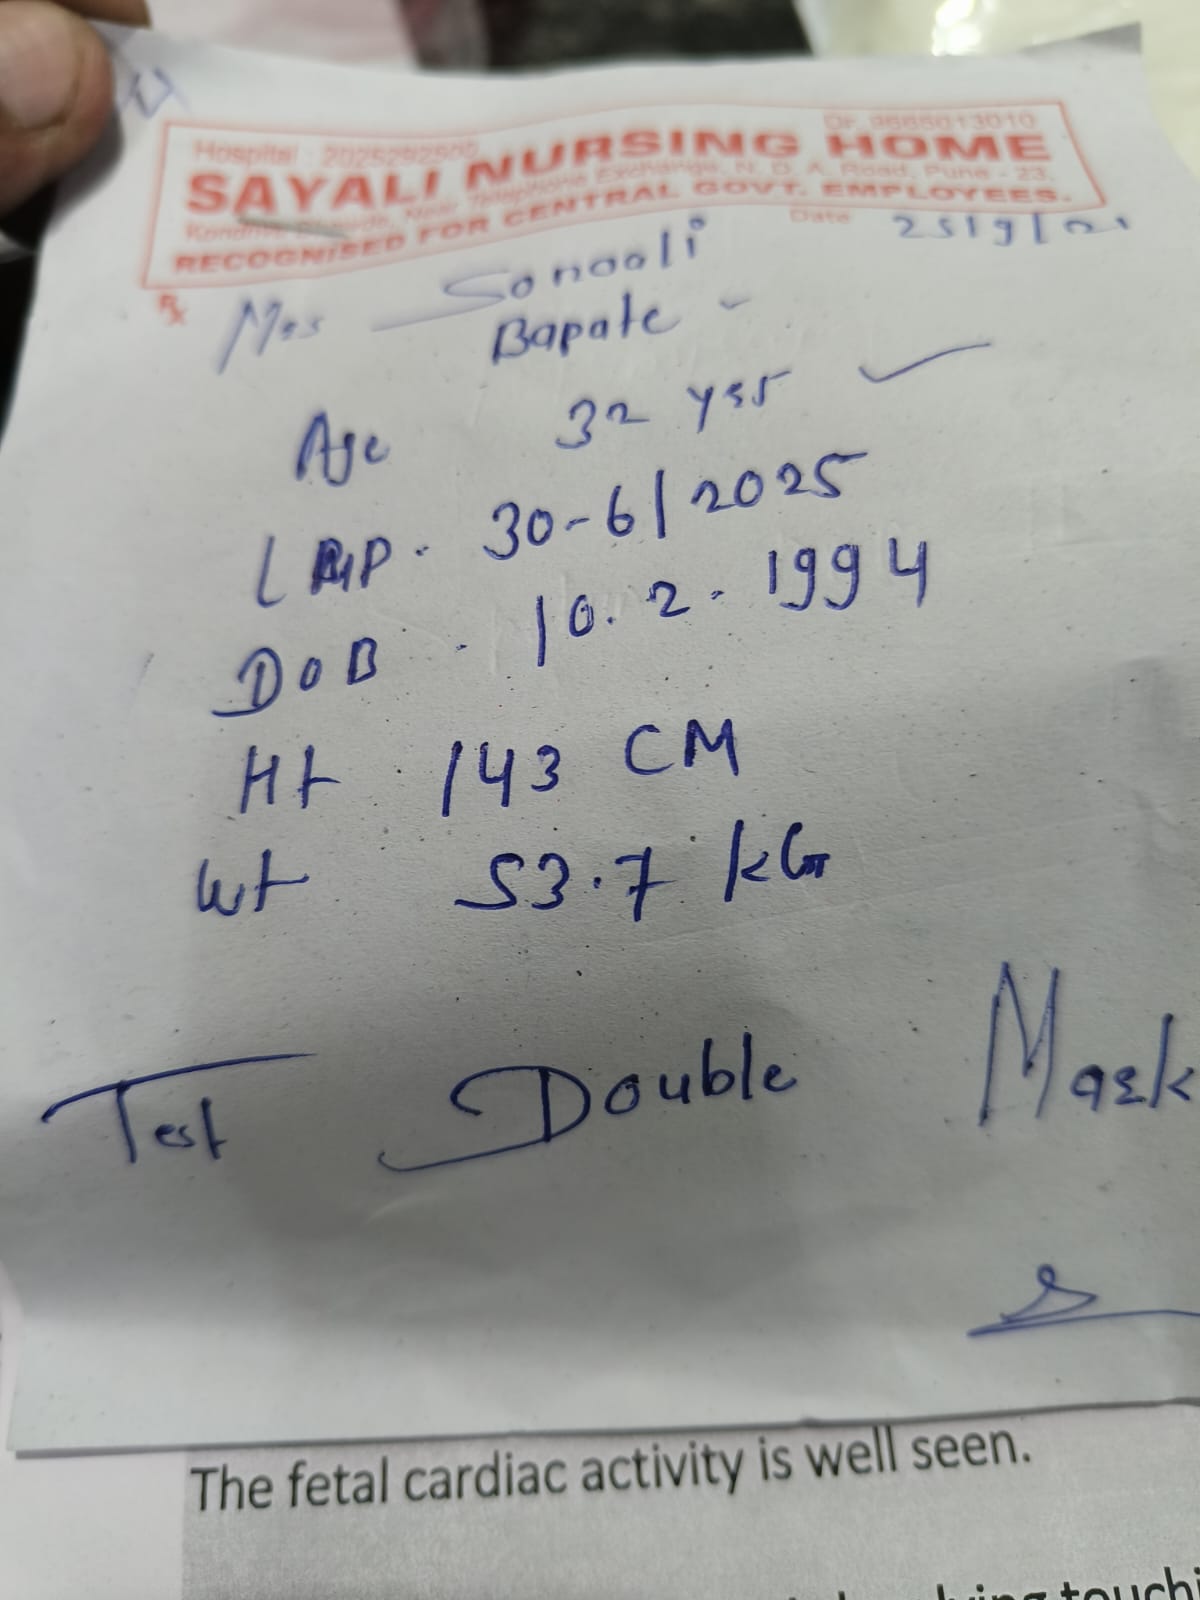 Hospital : 2025292500 Dr. 9665013010
SAYALI NURSING HOME
Near Telephone Exchange, N. D. A. Road, Pune - 23.
RECOGNISED FOR CENTRAL GOVT. EMPLOYEES.
Date 25/9/
Rx Mrs Sonaali
Bapate
Age 32 yrs
LMP. 30-6/2025
DOB. 10.2.1994
Ht 143 CM
Wt 53.7 kG
Test Double Mark
The fetal cardiac activity is well seen.
touchi